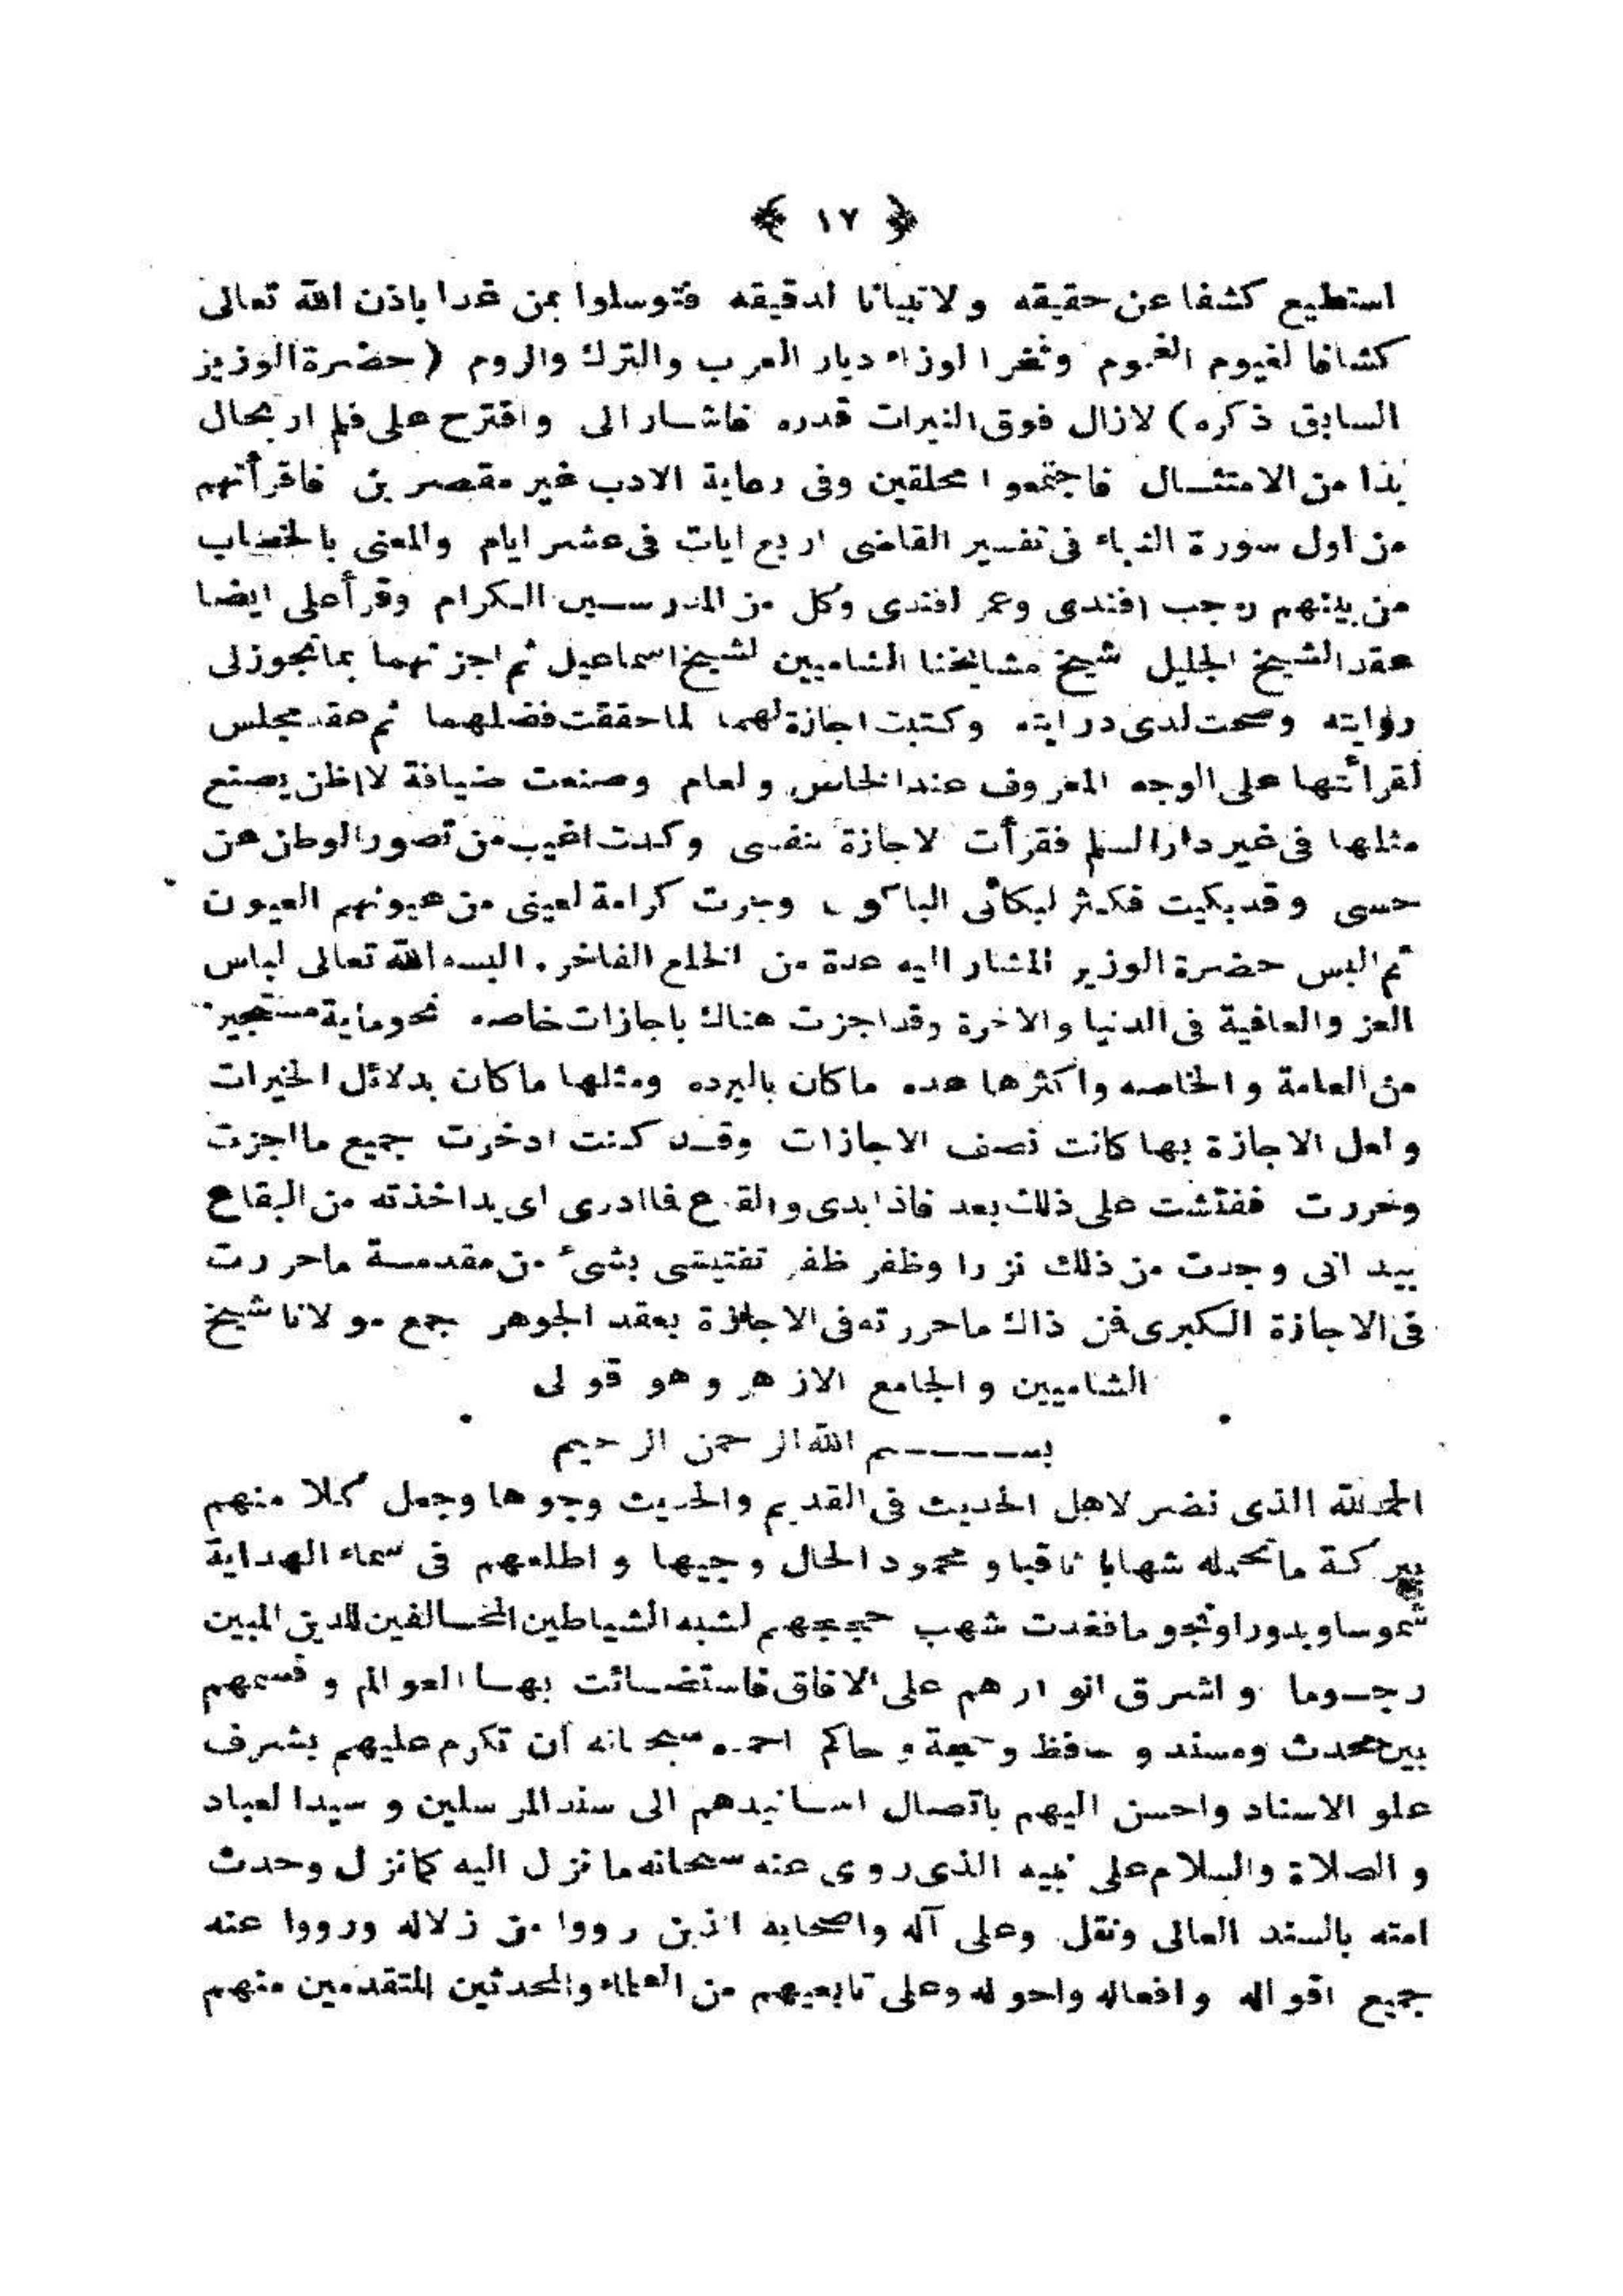 ﴿ ١٧ ﴾
استطيع كشفا عن حقيقه ولا تبيانا لدقيقه فتوسلوا بمن غدا باذن الله تعالى
كشافا لغيوم الغموم وثغرا لوزاء ديار العرب والترك والروم ( حضرة الوزير
السابق ذكره ) لازال فوق النيرات قدره فاشار الى واقترح على فلم ار بحال
بدا من الامتثال فاجتمعوا محلقين وفى رعاية الادب غير مقصرين فاقرأتهم
من اول سورة النباء فى تفسير القاضى اربع ايات فى عشر ايام والمعنى بالخطاب
من بينهم رجب افندى وعمر افندى وكل من المدرسين الكرام وقرأ على ايضا
عقد الشيخ الجليل شيخ مشايخنا الشاميين لشيخ اسماعيل ثم اجزتهما بما تجوز لى
روايته وصحت لدى درايته وكتبت اجازة لهما لما حققت فضلهما ثم عقد مجلس
لقرأتها على الوجه المعروف عند الخاص ولعام وصنعت ضيافة لا اظن يصنع
مثلها فى غير دار السلم فقرأت لاجازة بنفسى وكدت اغيب من تصور الوطن عن
حسى وقد بكيت فكثر لبكائى الباكون وجرت كرامة لعينى من عيونهم العيون
ثم البس حضرة الوزير المشار اليه عدة من الخلع الفاخره البسه الله تعالى لباس
العز والعافية فى الدنيا والاخرة وقد اجزت هناك باجازات خاصه نحو ماية مستجيز
من العامة والخاصه واكثرها عده ما كان بالبرده ومثلها ما كان بدلائل الخيرات
ولعل الاجازة بها كانت نصف الاجازات وقد كنت ادخرت جميع ما اجزت
وحررت ففتشت على ذلك بعد فاذا بدى والقاع فاادرى اى يد اخذته من البقاع
بيد انى وجدت من ذلك نزرا وظفر ظفر تفتيشى بشىء من مقدمسة ما حررت
فى الاجازة الكبرى فمن ذاك ما حررته فى الاجازة بعقد الجوهر جمع مولانا شيخ
الشاميين والجامع الازهر وهو قولى
بسم الله الرحمن الرحيم
الحمد لله الذى نضر لاهل الحديث فى القديم والحديث وجوها وجعل كلا منهم
ببركة ما تحمله شهابا ثاقبا ومحمود الحال وجيها واطلعهم فى سماء الهداية
شموسا وبدورا ونجوما فغدت شهب حججهم لشبه الشياطين المخالفين للدين المبين
رجوما واشرق انوارهم على الافاق فاستضائت بها العوالم وقسمهم
بين محدث ومسند وحافظ وحجة وحاكم احمده سبحانه أن تكرم عليهم بشرف
علو الاسناد واحسن اليهم باتصال اسانيدهم الى سند المرسلين وسيد العباد
والصلاة والسلام على نبيه الذى روى عنه سبحانه ما نزل اليه كما نزل وحدث
امته بالسند العالى ونقل وعلى آله واصحابه الذين رووا من زلاله ورووا عنه
جميع اقواله وافعاله واحوله وعلى تابعيهم من العلماء والمحدثين المتقدمين منهم